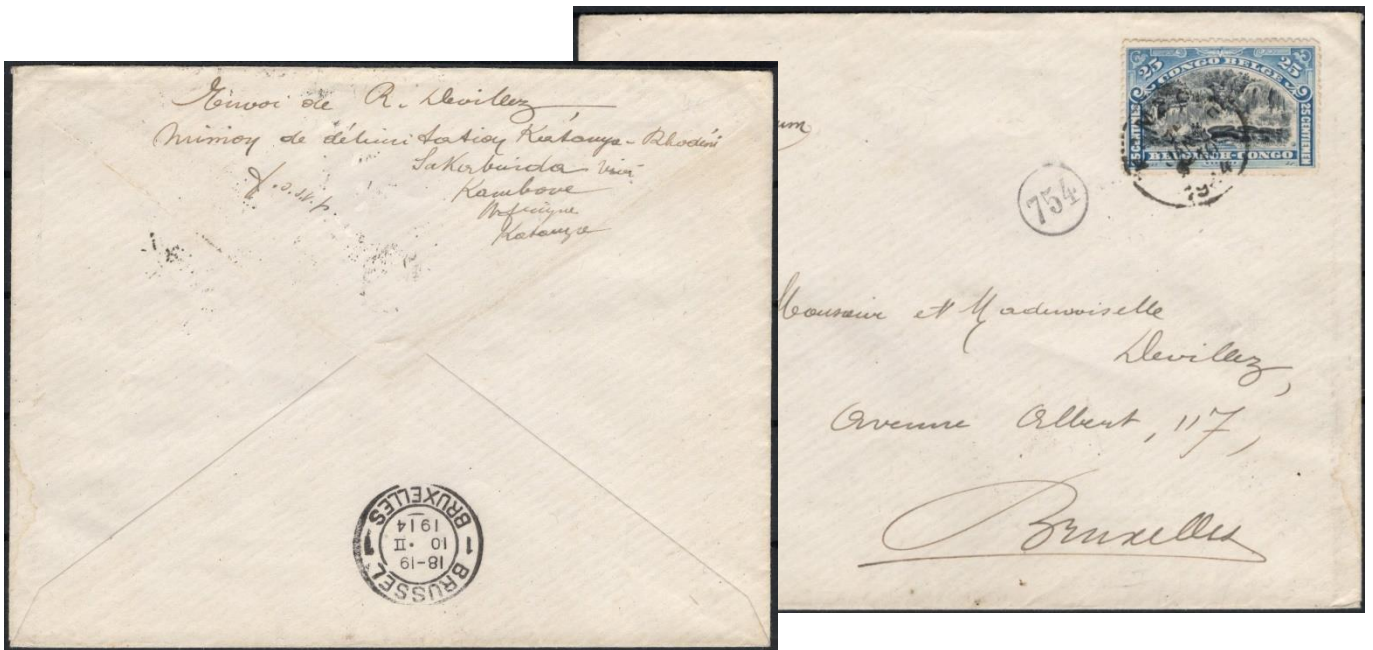 Envoi de R. Devillez
Mission de délimitation Katanga - Rhodési
Sakabinda viâ
Kambove
Katanga
BRUXELLES
1914
10 · II
18-19
1 BRUSSEL 1
25 CONGO BELGE 25
25 CENTIEMEN
BELGISCH-CONGO
754
Monsieur et Mademoiselle
Devillez,
Avenue Albert, 117,
Bruxelles